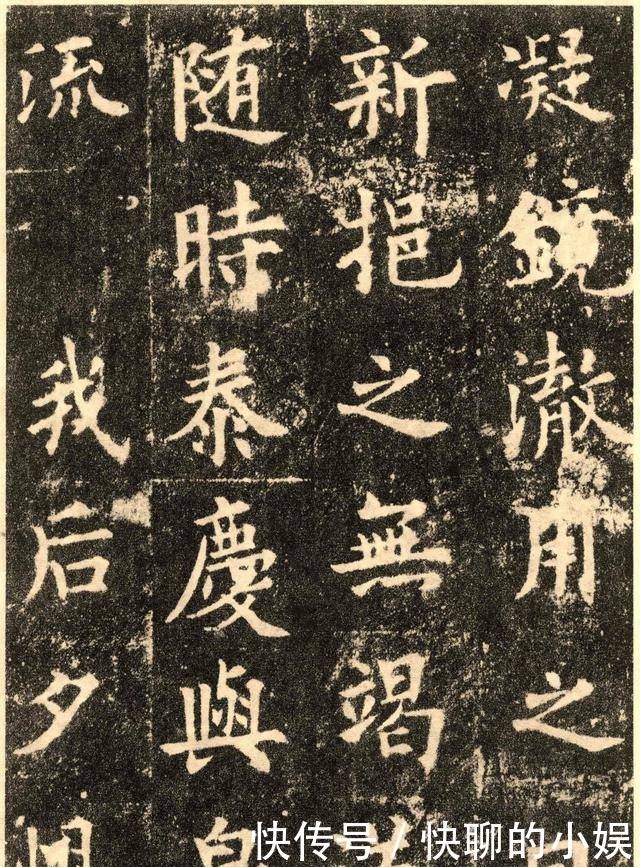 凝鏡澈用之
新挹之無竭
随時泰慶與
流 我后夕
快传号 / 快聊的小娱